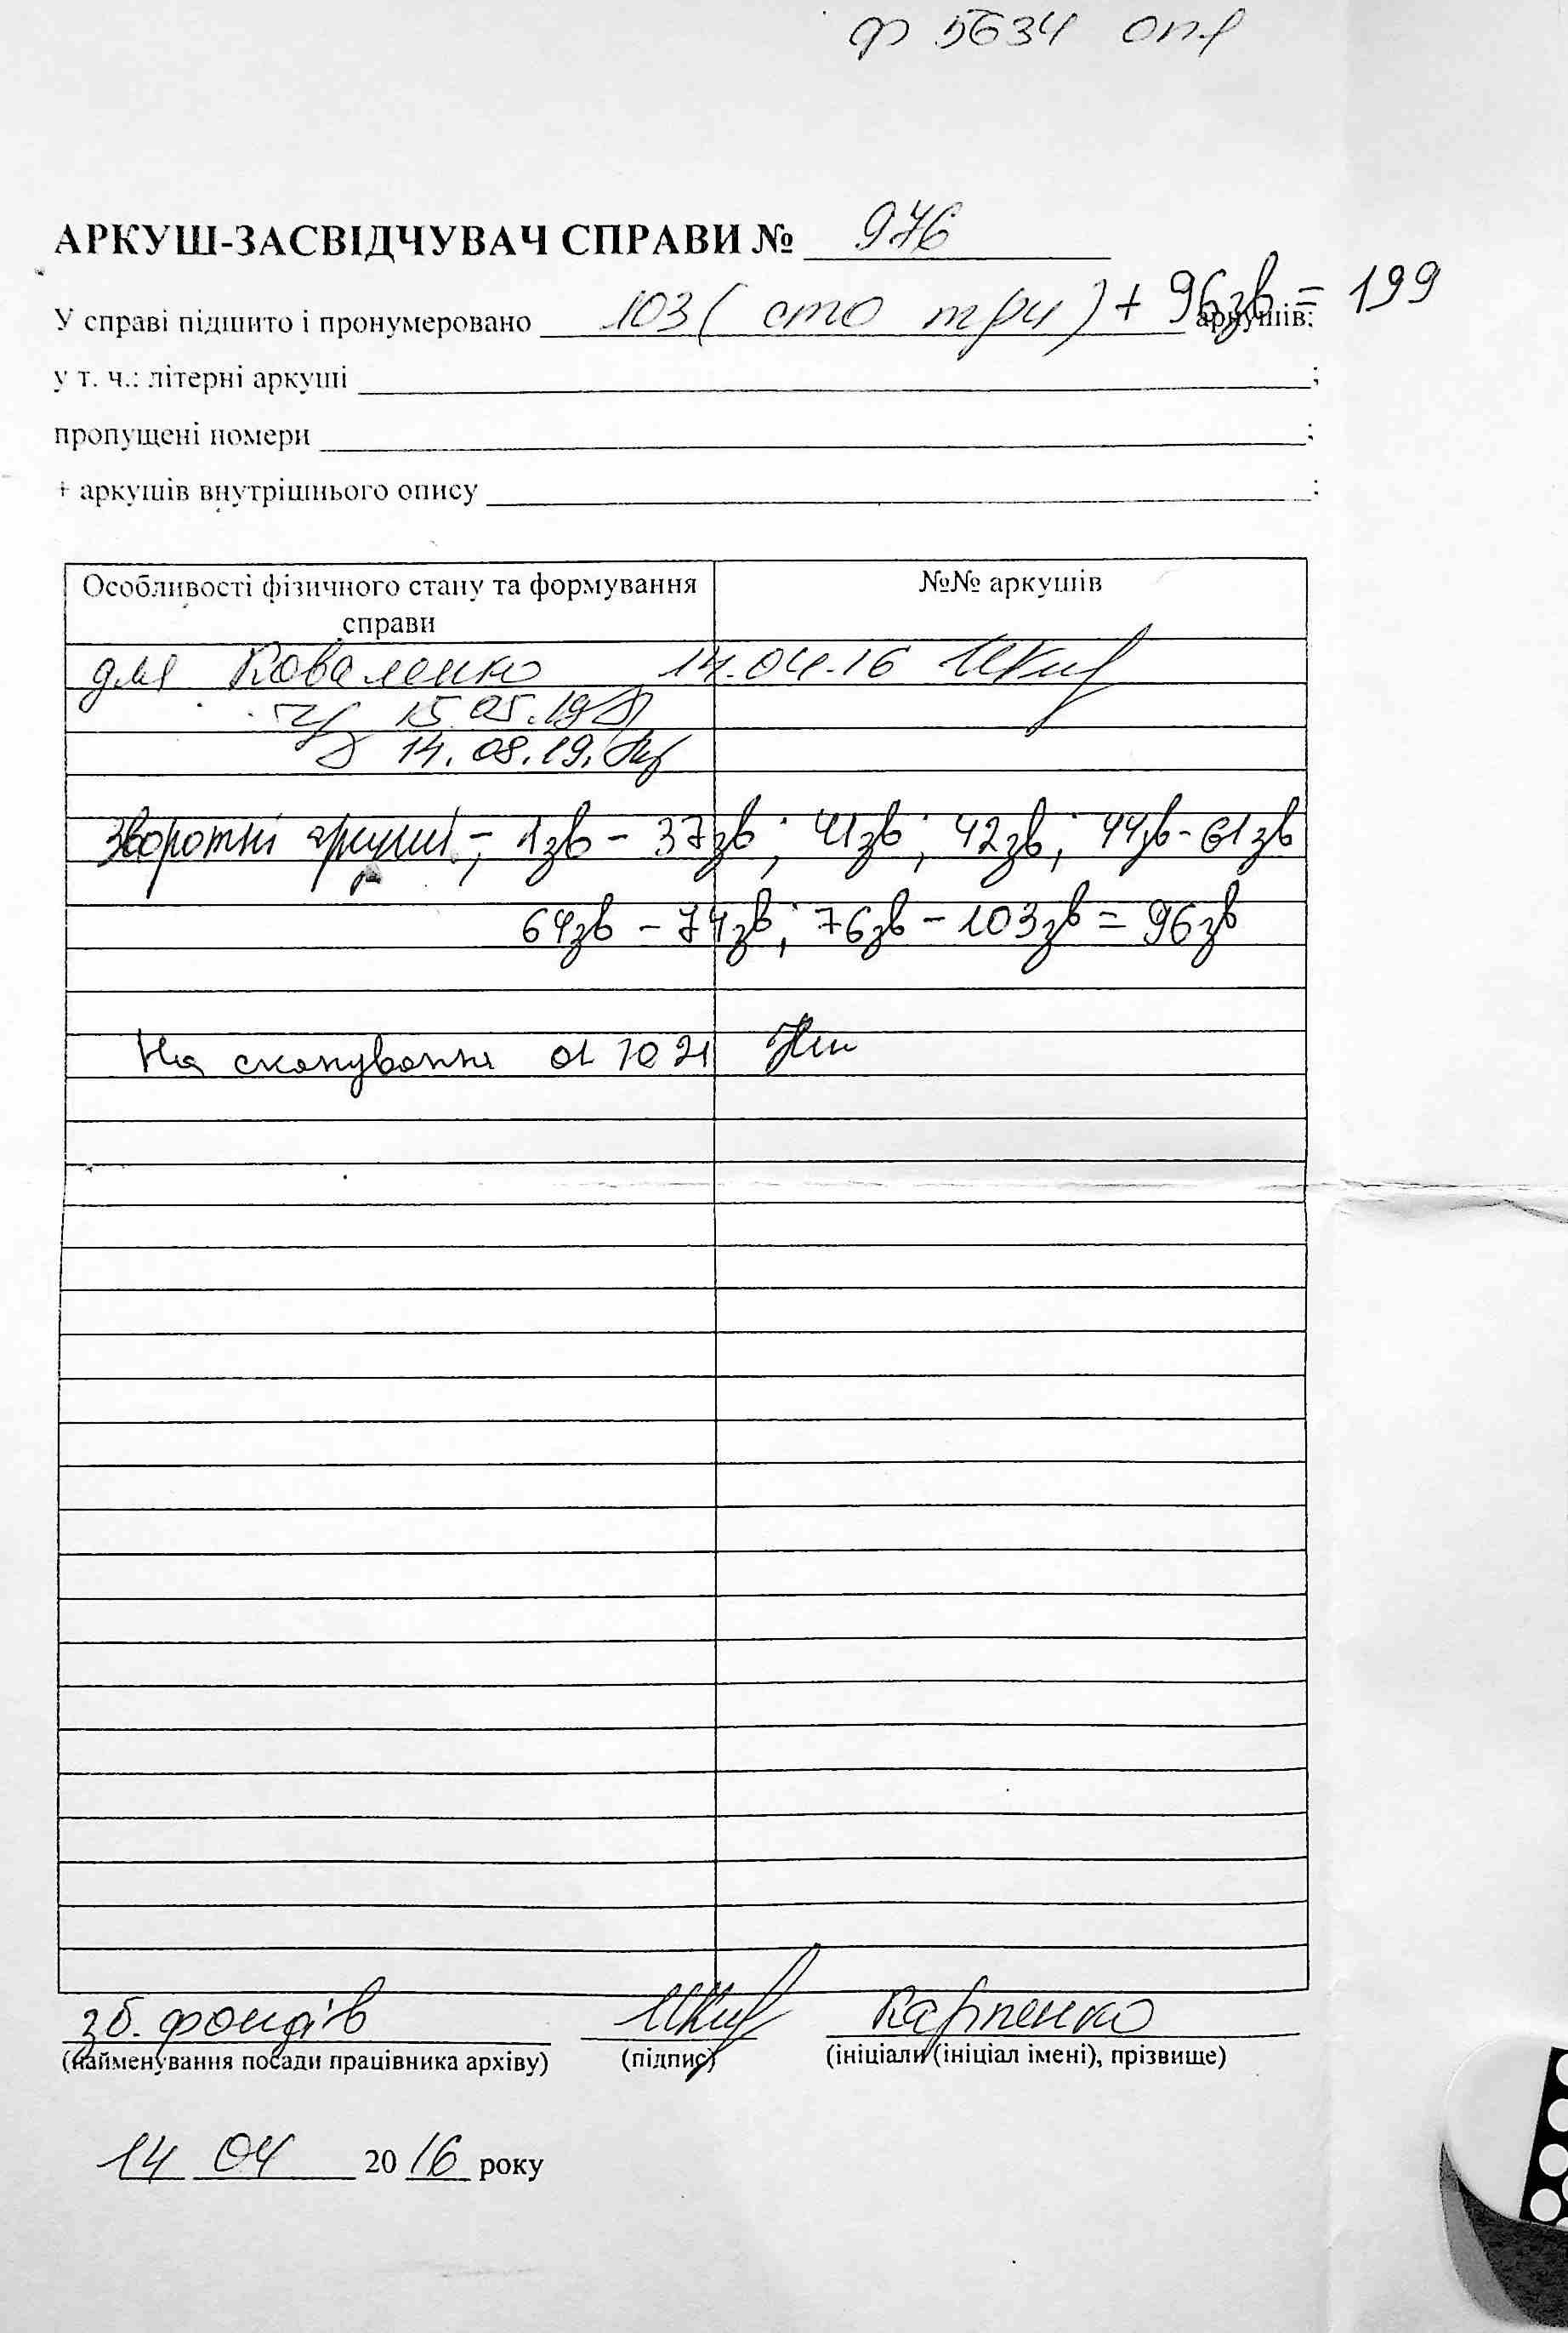 ф 5634 оп 1
АРКУШ-ЗАСВІДЧУВАЧ СПРАВИ № 976
У справі підшито і пронумеровано 103 ( сто три ) + 96зв = 199 аркушів;
у т. ч.: літерні аркуші ;
пропущені номери ;
+ аркушів внутрішнього опису ;
Особливості фізичного стану та формування справи
№№ аркушів
для Коваленко 14.04.16
15.05.19
14.08.19.
Зворотні аркуші; - 1зв - 37зв; 41зв; 42зв; 44зв - 61зв
64зв - 74зв; 76зв - 103зв = 96зв
На сканування 01 10 21
зб. фондів Карпенко
(найменування посади працівника архіву) (підпис) (ініціали (ініціал імені), прізвище)
14 04 2016 року